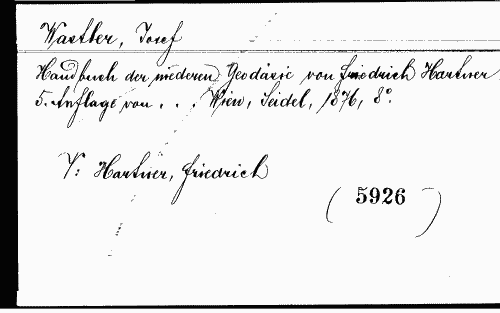 Wastler, Josef
Handbuch der niederen Geodäsie von Friedrich Hartner,
5. Auflage von . . . Wien, Seidel, 1876, 8°.
V: Hartner, Friedrich
( 5926 )